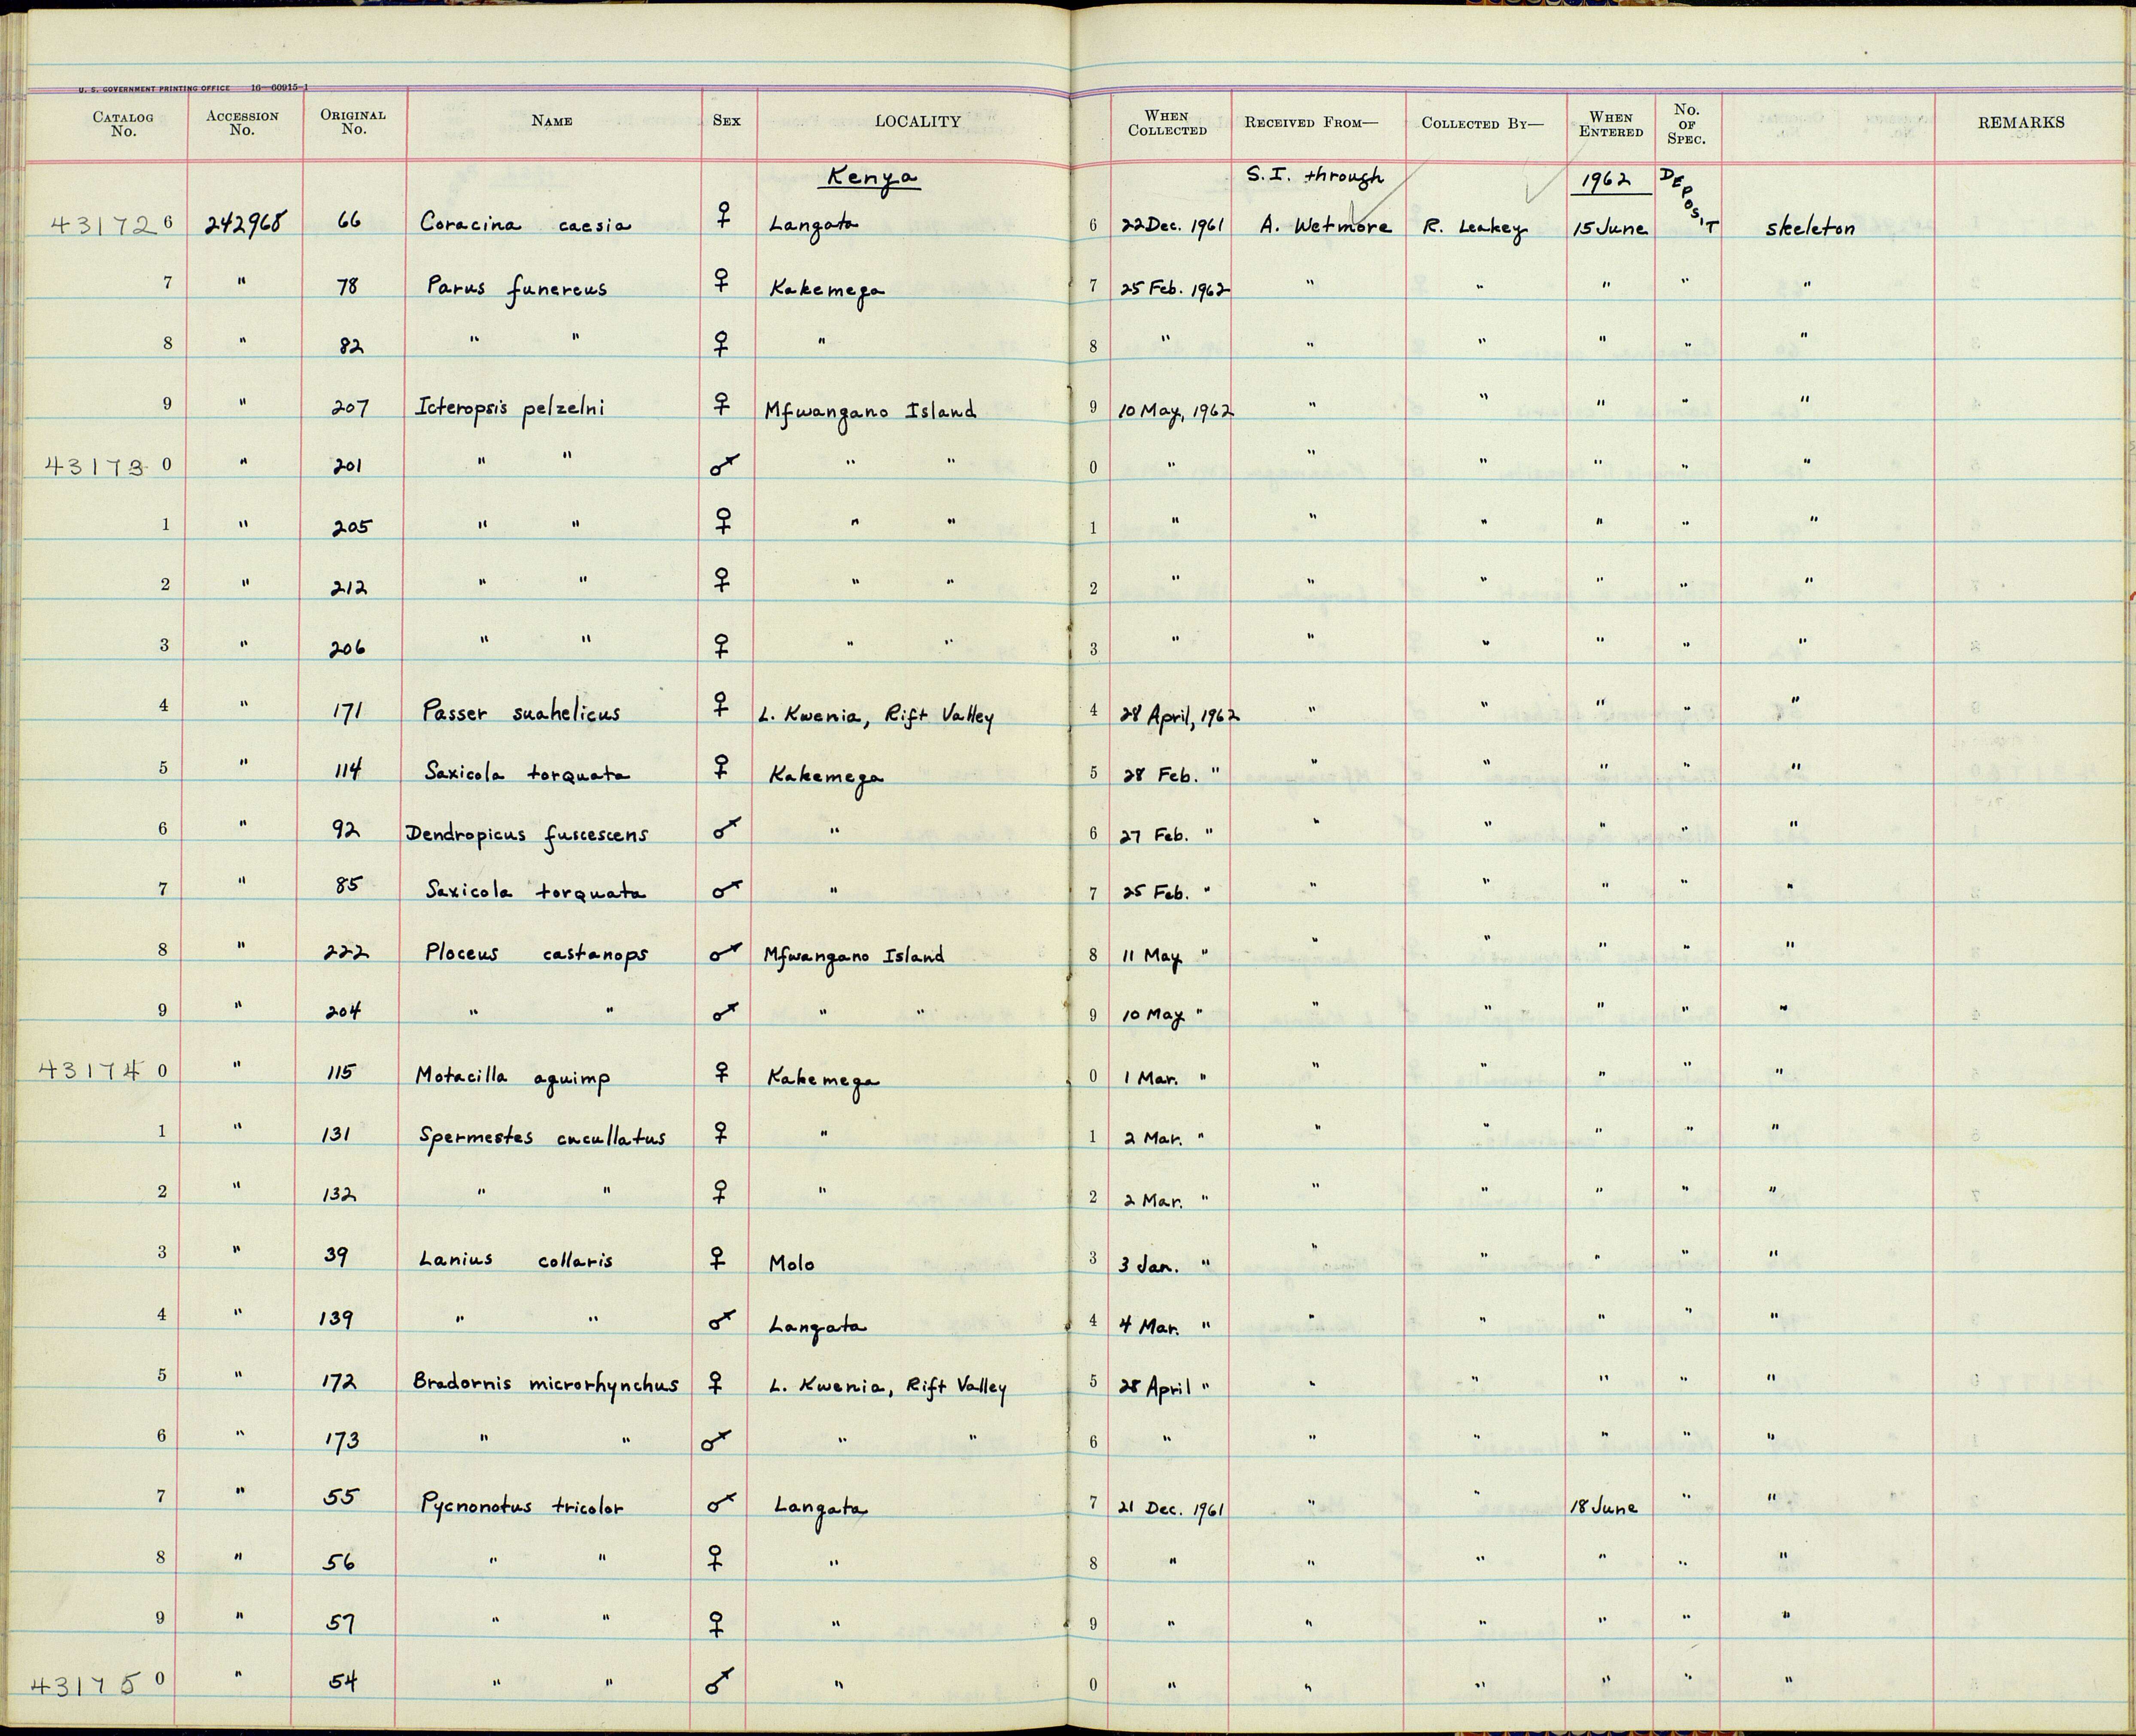 U. S. GOVERNMENT PRINTING OFFICE 16—60915-1
CATALOG No. ACCESSION No. ORIGINAL No. NAME SEX LOCALITY WHEN COLLECTED RECEIVED FROM— COLLECTED BY— WHEN ENTERED No. OF SPEC. REMARKS
Kenya S. I. through 1962 DEPOSIT
431726 242968 66 Coracina caesia ♀ Langata 6 22 Dec. 1961 A. Wetmore R. Leakey 15 June skeleton
7 " 78 Parus funereus ♀ Kakemega 7 25 Feb. 1962 " " " " "
8 " 82 " " ♀ " 8 " " " " " "
9 " 207 Icteropsis pelzelni ♀ Mfwangano Island 9 10 May, 1962 " " " " "
431730 " 201 " " ♂ " " 0 " " " " " "
1 " 205 " " ♀ " " 1 " " " " " "
2 " 212 " " ♀ " " 2 " " " " " "
3 " 206 " " ♀ " " 3 " " " " " "
4 " 171 Passer suahelicus ♀ L. Kwenia, Rift Valley 4 28 April, 1962 " " " " "
5 " 114 Saxicola torquata ♀ Kakemega 5 28 Feb. " " " " " "
6 " 92 Dendropicus fuscescens ♂ " 6 27 Feb. " " " " " "
7 " 85 Saxicola torquata ♂ " 7 25 Feb. " " " " " "
8 " 222 Ploceus castanops ♂ Mfwangano Island 8 11 May " " " " " "
9 " 204 " " ♂ " " 9 10 May " " " " " "
431740 " 115 Motacilla aguimp ♀ Kakemega 0 1 Mar. " " " " " "
1 " 131 Spermestes cucullatus ♀ " 1 2 Mar. " " " " " "
2 " 132 " " ♀ " 2 2 Mar. " " " " " "
3 " 39 Lanius collaris ♀ Molo 3 3 Jan. " " " " " "
4 " 139 " " ♂ Langata 4 4 Mar. " " " " " "
5 " 172 Bradornis microrhynchus ♀ L. Kwenia, Rift Valley 5 28 April " " " " " "
6 " 173 " " ♂ " " 6 " " " " " "
7 " 55 Pycnonotus tricolor ♂ Langata 7 21 Dec. 1961 " " 18 June " "
8 " 56 " " ♀ " 8 " " " " " "
9 " 57 " " ♀ " 9 " " " " " "
431750 " 54 " " ♂ " 0 " " " " " "